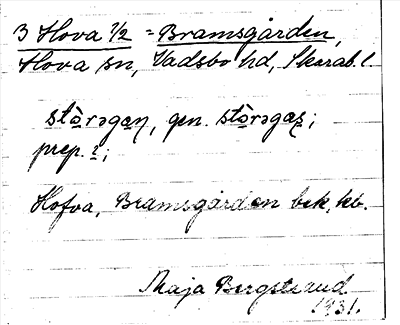 3 Hova 1/2 = Bramsgården,
Hova sn, Vadsbo hd, Skarab. l.
stòrəgaɳ, gen. stòrəgaʂ;
prep. ?;
Hofva, Bramsgården bek, kb.
Maja Bergstrand
1931.